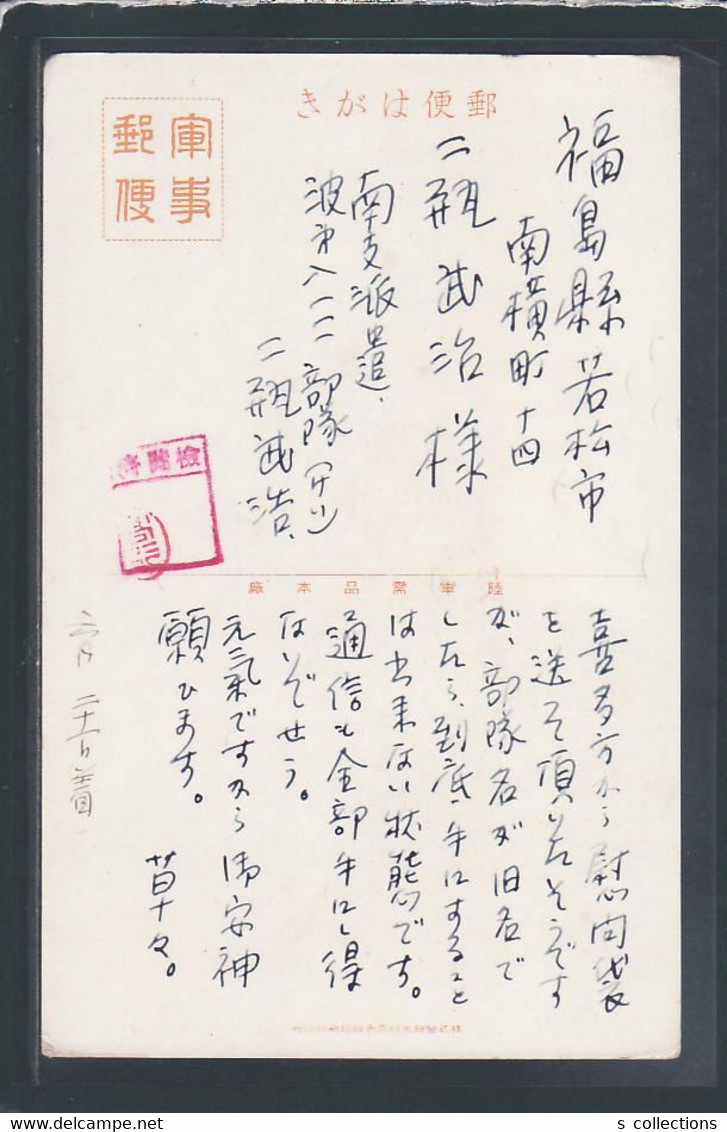 郵便はがき
軍事
郵便
福島縣若松市
南横町十四
二瓶武治様
南支派遣、
波第八一二二部隊(ケリ)
二瓶武浩、
檢閲濟
陸軍需品本廠
喜多方から慰問袋
を送って頂いたそうです
が、部隊名が旧名で
したら、到底、手にすること
は出来ない状態です。
通信も全部手にし得
ないでせう。
元気ですから御安神
願ひます。
草々。
二十一日着
s collections